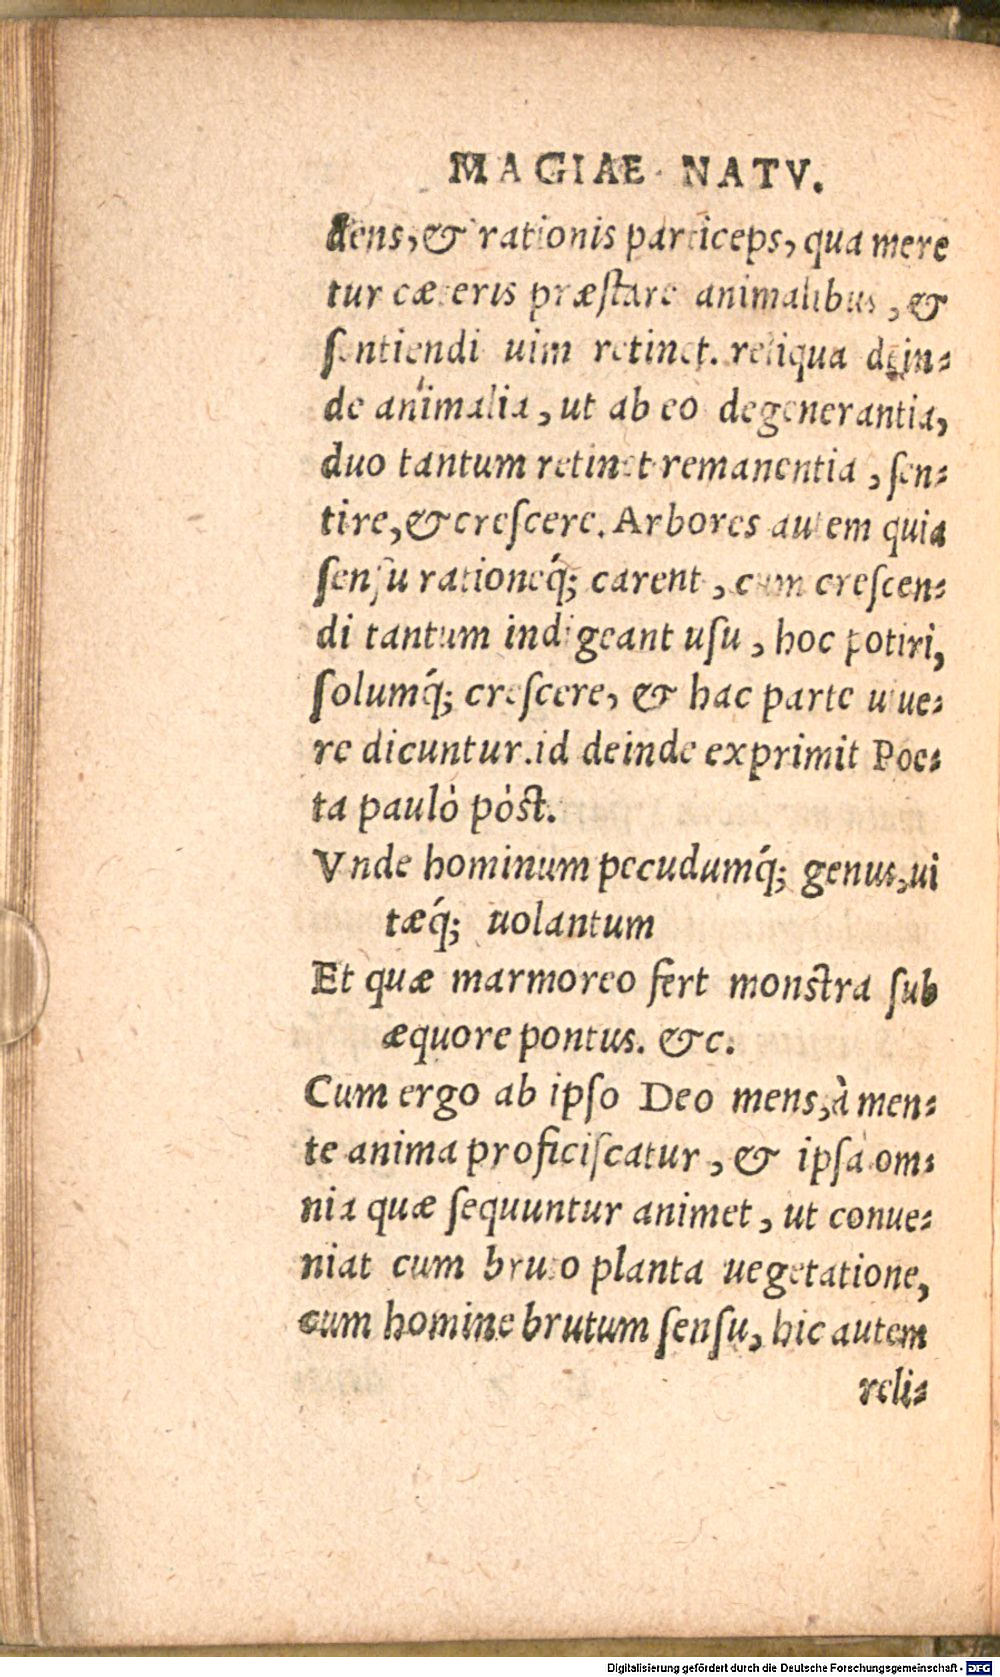 MAGIAE NATV.
dens, & rationis particeps, qua mere
tur cæteris præſtare animalibus, &
ſentiendi uim retinet. reliqua dein⸗
de animalia, ut ab eo degenerantia,
duo tantum retinet remanentia, ſen⸗
tire, & creſcere. Arbores autem quia
ſenſu rationeq́; carent, cum creſcen⸗
di tantum indigeant uſu, hoc potiri,
ſolumq́; creſcere, & hac parte uiue⸗
re dicuntur. id deinde exprimit Poe⸗
ta paulò pòſt.
Vnde hominum pecudumq́; genus, ui
tæq́; uolantum
Et quæ marmoreo fert monſtra ſub
æquore pontus. &c.
Cum ergo ab ipſo Deo mens, à men⸗
te anima proficiſcatur, & ipſa om⸗
nia quæ ſequuntur animet, ut conue⸗
niat cum bruto planta uegetatione,
cum homine brutum ſenſu, hic autem
reli⸗
Digitalisierung gefördert durch die Deutsche Forschungsgemeinschaft - DFG